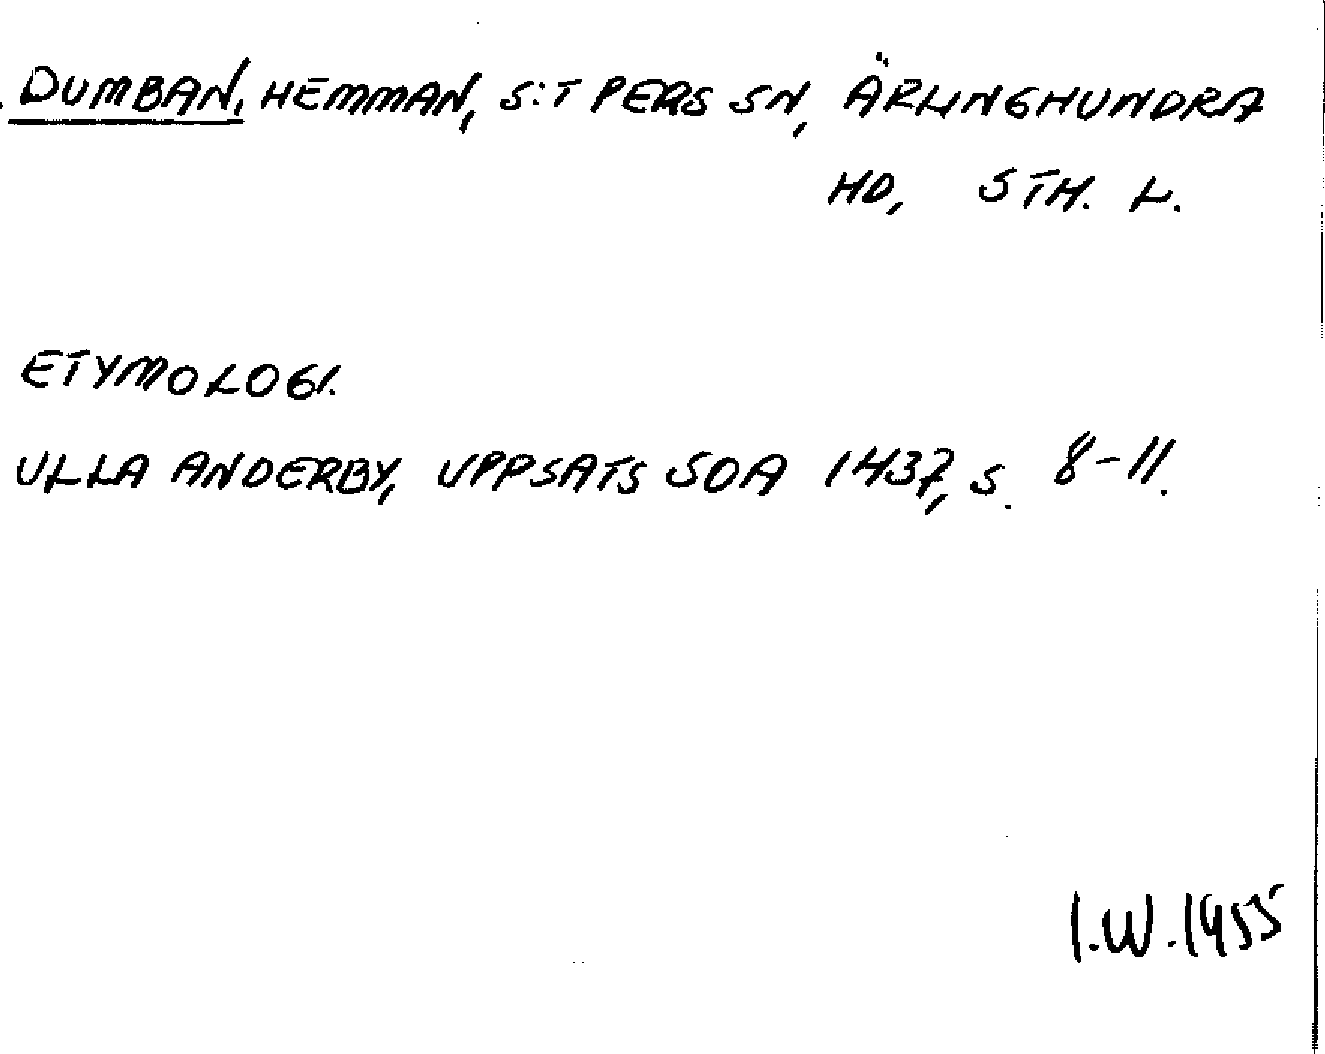 DUMBAN, HEMMAN, S:T PERS SN, ÄRLINGHUNDRA
HD, STH. L.
ETYMOLOGI.
ULLA ANDERBY, UPPSATS SOA 1437, S. 8-11.
I.W. 1955